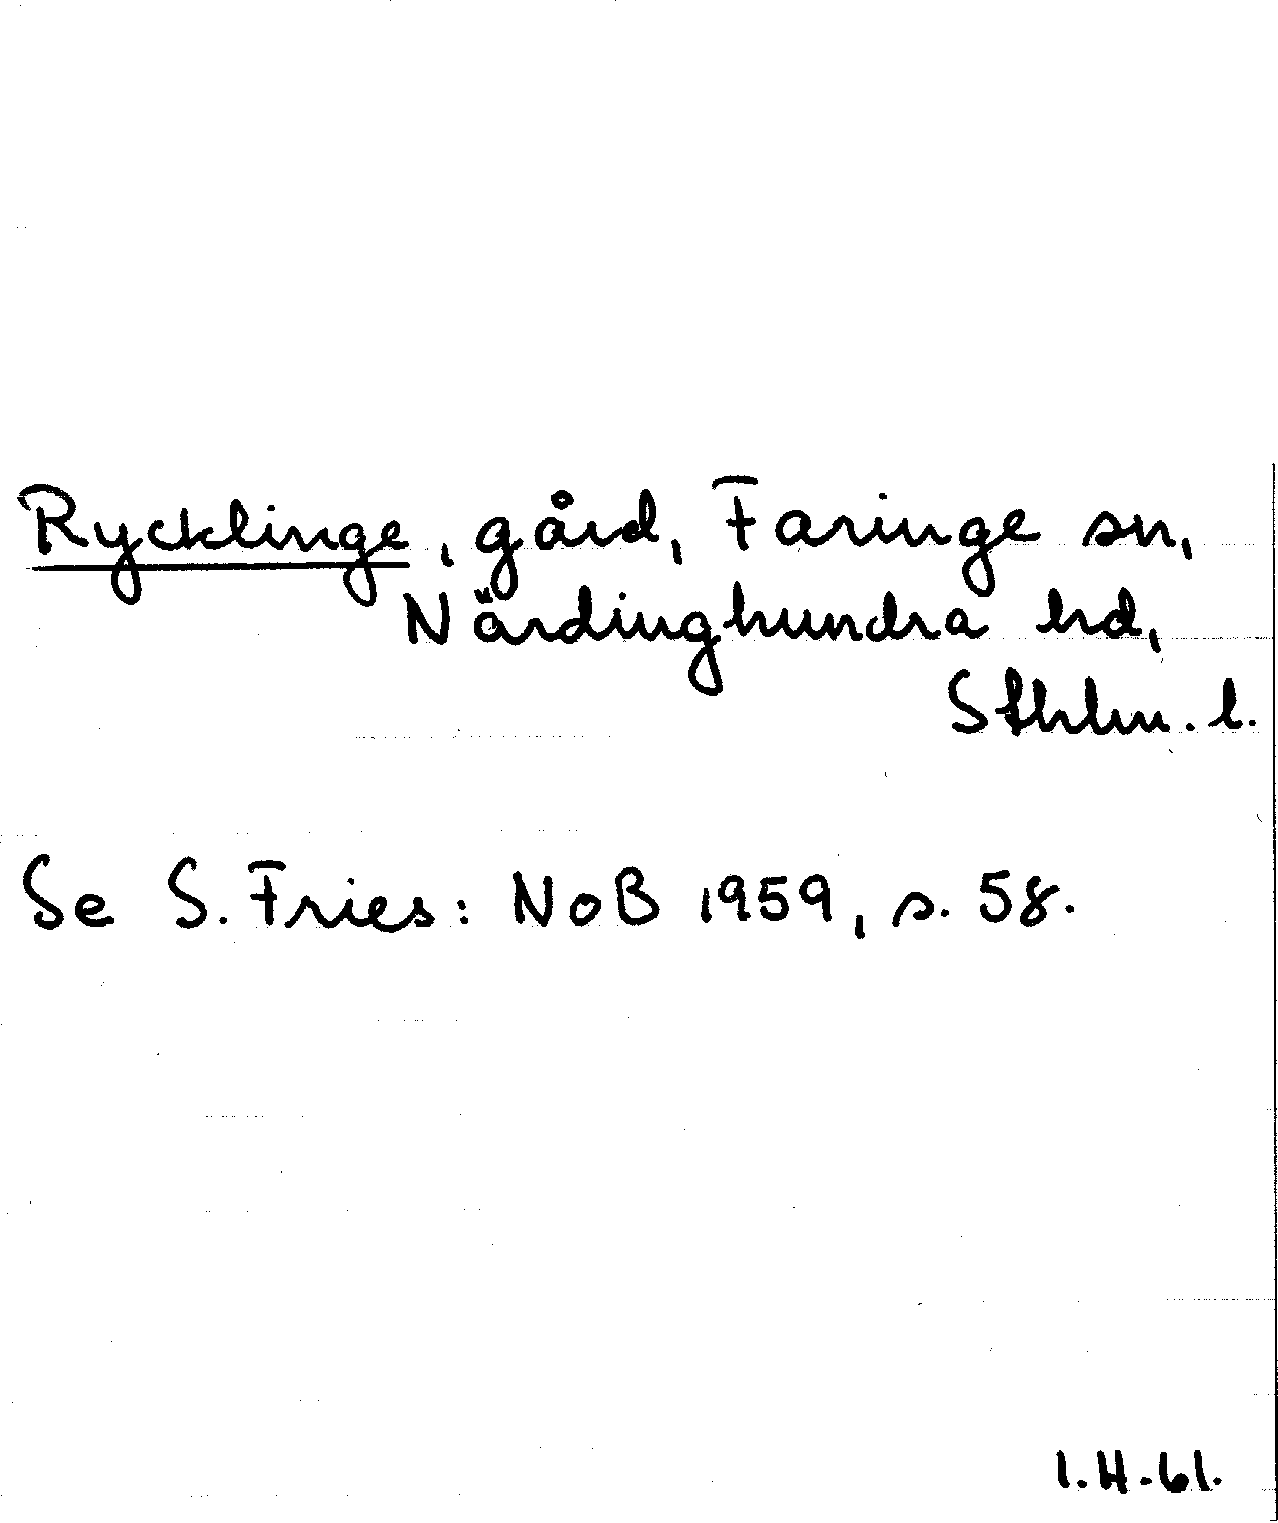 Rycklinge, gård, Faringe sn,
Närdinghundra hd,
Sthlm. l.
Se S. Fries: NoB 1959, s. 58.
I.H-61.